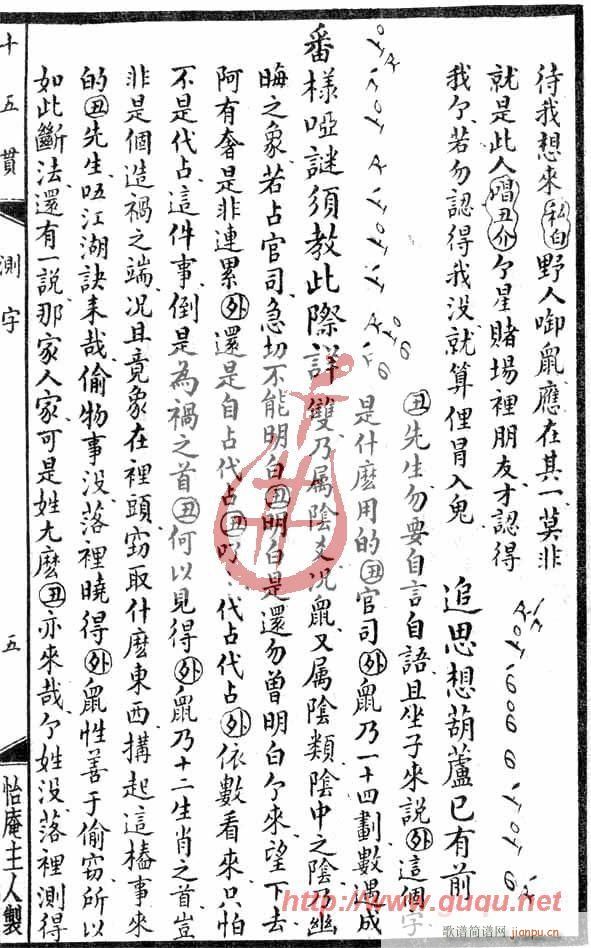 待我想來私白野人啣鼠應在其一莫非
就是此人唱丑介个星賭場裡朋友才認得
我个若勿認得我没就算俚冐入鬼
追思想葫蘆已有前
丑先生勿要自言自語且坐子來説外這個字
是什麽用的丑官司外鼠乃一十四劃數是成
番様啞謎須教此際詳雙乃属陰爻况鼠又属陰類陰中之陰乃幽
晦之象若占官司急切不能明白丑明白是還勿曾明白个來望下去
阿有奢是非連累外還是自占代占丑代占代占外依數看來只怕
不是代占這件事倒是為禍之首丑何以見得外鼠乃十二生肖之首豈
非是個造禍之端况且竟象在裡頭窃取什麽東西搆起這樁事來
的丑先生唔江湖訣来哉偷物事没落裡曉得外鼠性善于偷窃所以
如此斷法還有一説那家人家可是姓尤麽丑亦來哉个姓没落裡測得
十五貫
測字
五
怡庵主人製
http://www.guqu.net
歌谱简谱网
jianpu.cn